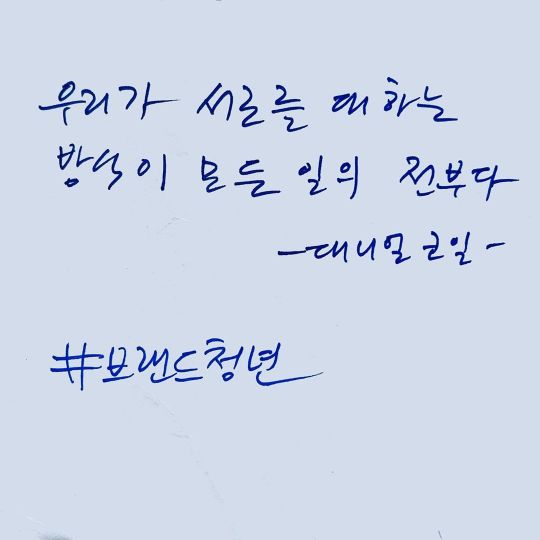 우리가 서로를 대하는
방식이 모든 일의 전부다
-대니얼 코일-
#브랜드청년